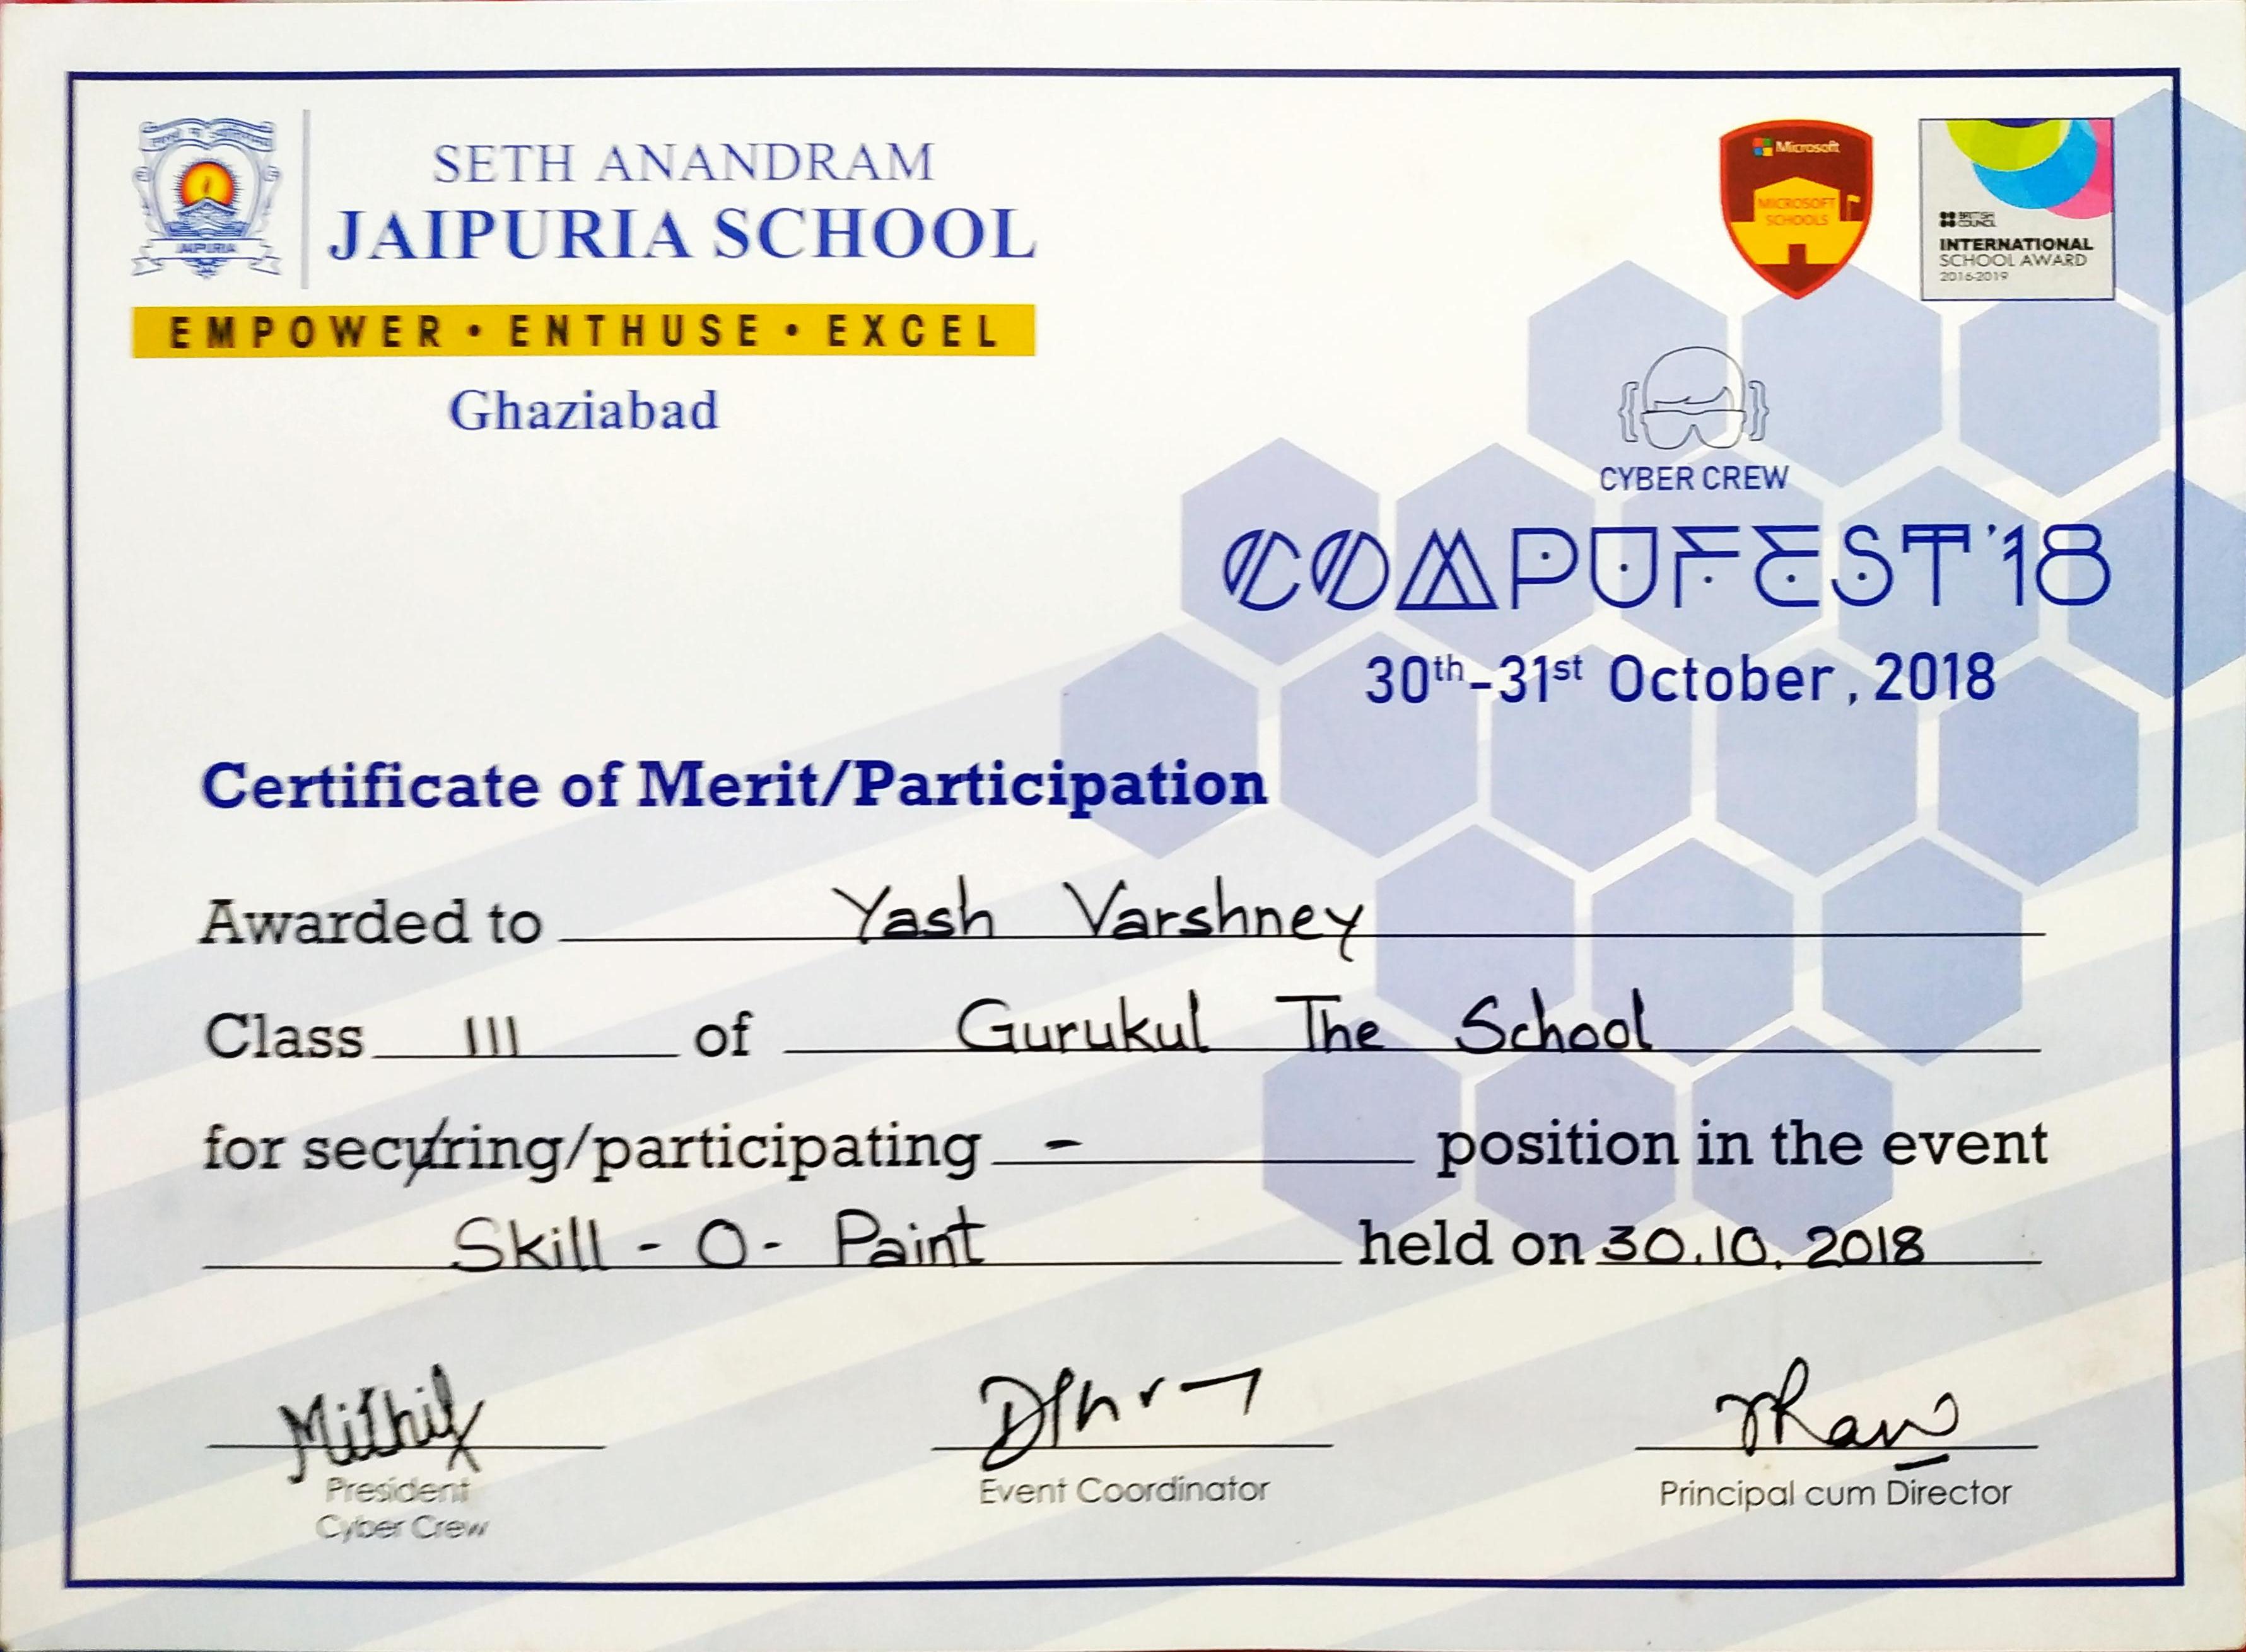 SETH ANANDRAM
JAIPURIA SCHOOL
JAIPURIA
EMPOWER • ENTHUSE • EXCEL
Ghaziabad
Microsoft
MICROSOFT
SCHOOLS
BRITISH
COUNCIL
INTERNATIONAL
SCHOOL AWARD
2016-2019
CYBER CREW
COMPUFEST'18
30th-31st October, 2018
Certificate of Merit/Participation
Awarded to Yash Varshney
Class III of Gurukul The School
for securing/participating - position in the event
Skill - O - Paint held on 30.10.2018
Mithil
President
Cyber Crew
Event Coordinator
Principal cum Director